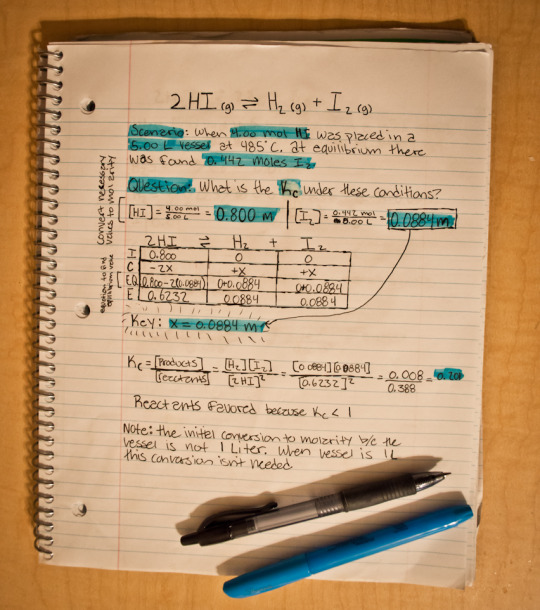 2HI (g) ⇌ H₂ (g) + I₂ (g)
Scenario: When 4.00 mol HI was placed in a
5.00 L vessel at 485°C, at equilibrium there
was found 0.442 moles I₂
Question: What is the Kc under these conditions?
convert necessary
values to molarity
[HI] = 4.00 mol / 5.00 L = 0.800 m | [I₂] = 0.442 mol / 5.00 L = 0.0884 m
2HI ⇌ H₂ + I₂
I 0.800 0 0
C -2x +x +x
EQ 0.800-2(0.0884) 0+0.0884 0+0.0884
E 0.6232 0.0884 0.0884
equation to find
equilibrium value
Key: x = 0.0884 m
Kc = [Products] / [reactants] = [H₂][I₂] / [2HI]² = [0.0884][0.0884] / [0.6232]² = 0.008 / 0.388 =
Reactants favored because Kc < 1
Note: the initel conversion to molarity b/c the
vessel is not 1 Liter. When vessel is 1L
this conversion isn't needed